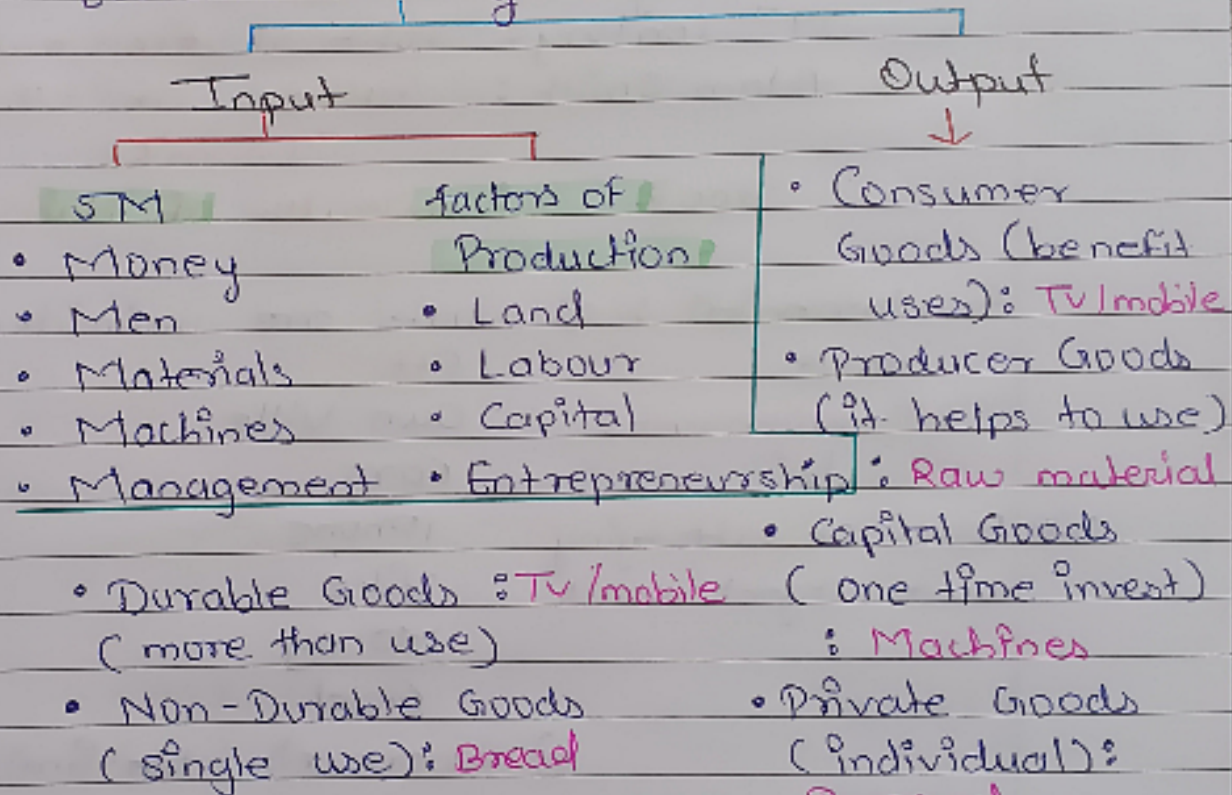 Input
Output
5M
factors of
Production
• Money
• Men
• Materials
• Machines
• Management
• Land
• Labour
• Capital
• Entrepreneurship
• Consumer
Goods (benefit
uses): TV/mobile
• Producer Goods
(it helps to use)
: Raw material
• Capital Goods
(one time invest)
: Machines
• Private Goods
(individual):
• Durable Goods : TV/mobile
(more than use)
• Non-Durable Goods
(single use): Bread